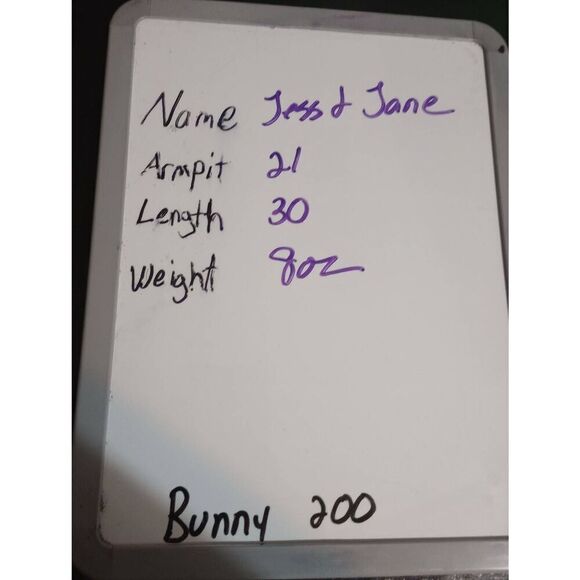 Name Jess & Jane
Armpit 21
Length 30
Weight 8oz
Bunny 200